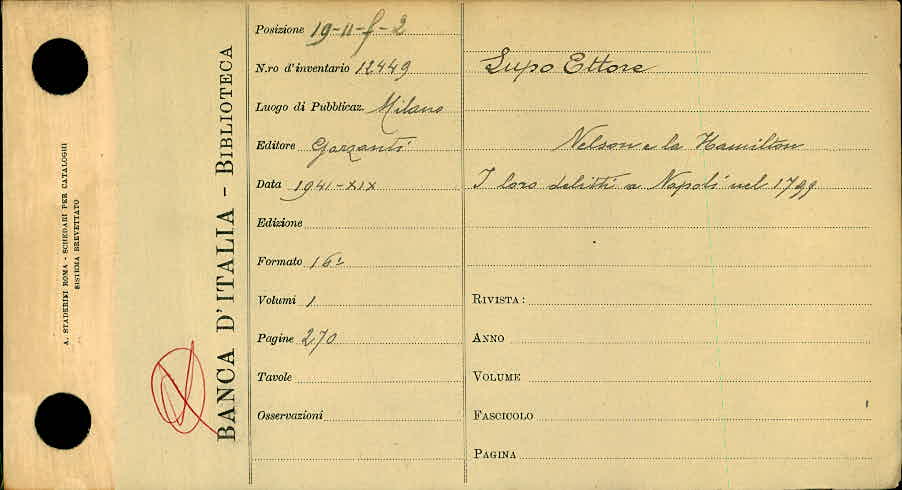 A. STADERINI ROMA - SCHEDARI PER CATALOGHI
SISTEMA BREVETTATO
BANCA D'ITALIA - BIBLIOTECA
Posizione 19-11-f-2
N.ro d'inventario 12449
Luogo di Pubblicaz. Milano
Editore Garzanti
Data 1941-XIX
Edizione
Formato 16º
Volumi 1
Pagine 270
Tavole
Osservazioni
Lupo Ettore
Nelson e la Hamilton
I loro delitti a Napoli nel 1799
RIVISTA:
ANNO
VOLUME
FASCICOLO
PAGINA